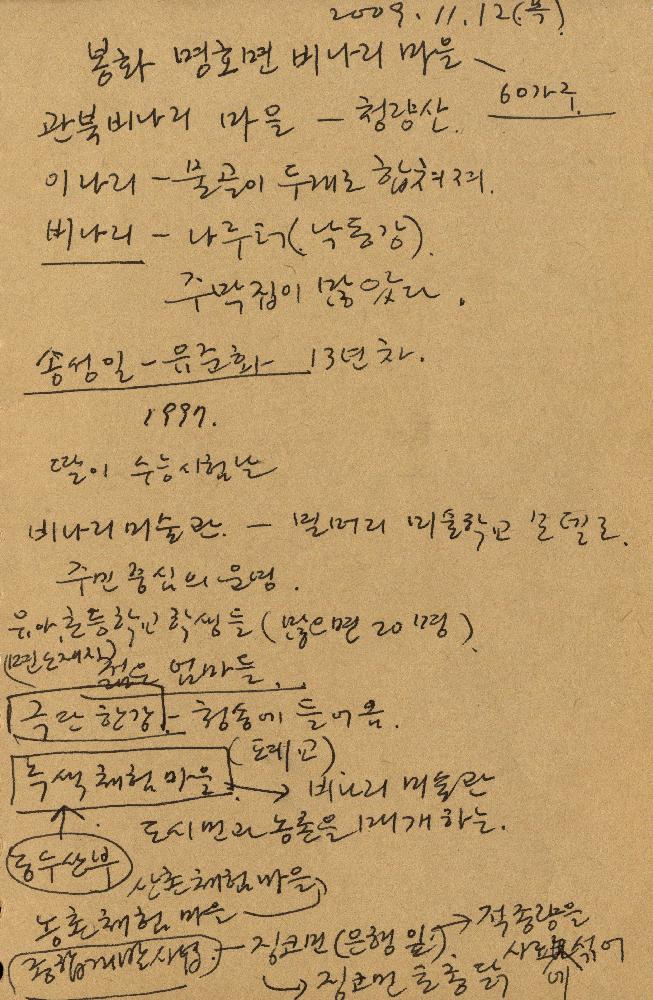 2009.11.12(목)
봉화 명호면 비나리 마을
60가구
관북비나리 마을 - 청량산.
이나리 - 물골이 두개로 합쳐져.
비나리 - 나루터(낙동강).
주막집이 많았다.
송성일 - 유준화 13년차.
1997.
딸이 수능시험날
비나리미술관. - 밀머리 미술학교 모델로.
주민 중심의 운영.
유아, 초등학교 학생들 (많으면 20여명).
(면소재지)
젊은 엄마들.
극단 한강 - 청송에 들어옴.
(폐교)
녹색체험마을 → 비나리 미술관
도시민과 농촌을 매개하는.
농수산부
산촌체험마을
농촌체험 마을
종합개발사업 - 징코민(은행잎). → 적중량을
사료에 섞어
→ 징코민 토종닭